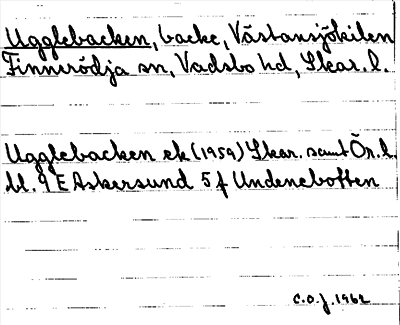 Ugglebacken, backe, Västansjökilen
Finnerödja sn, Vadsbo hd, Skar. l.
Ugglebacken ek (1959) Skar. samt Ör. l.
bl. 9 E Askersund 5 f Undeneboften
C.O.J. 1962